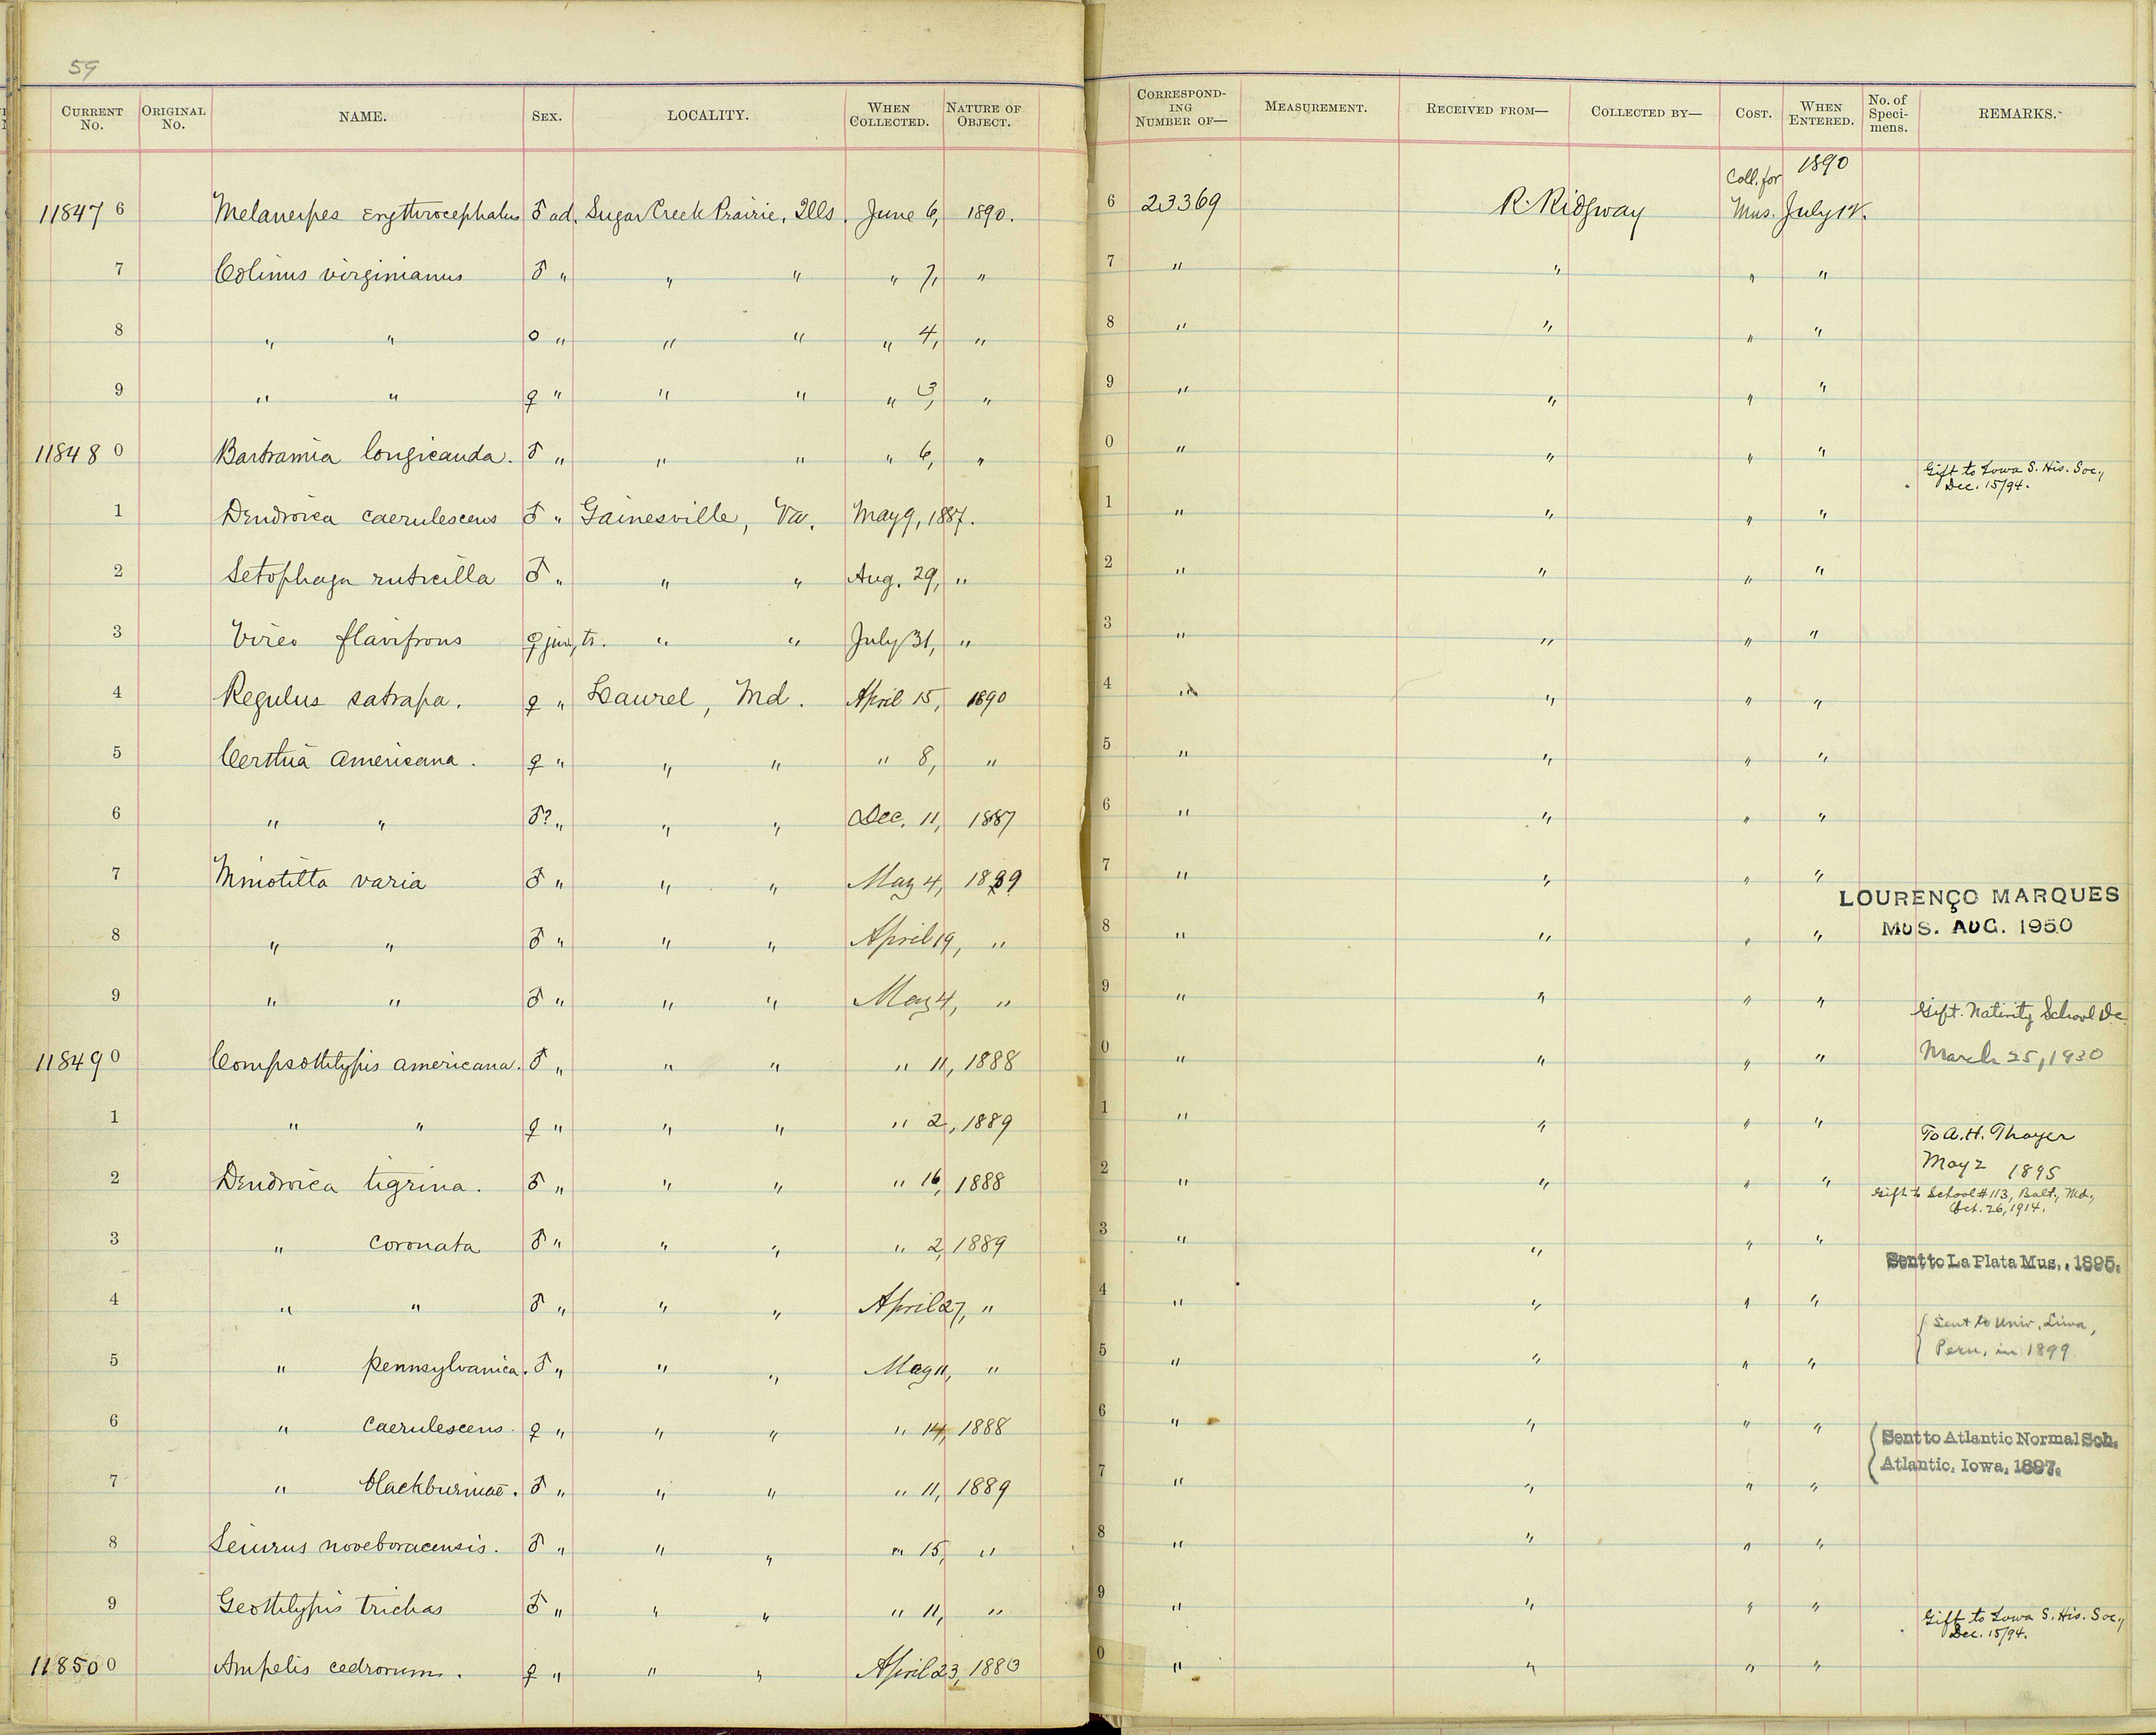 59
CURRENT No. ORIGINAL No. NAME. SEX. LOCALITY. WHEN COLLECTED. NATURE OF OBJECT. CORRESPONDING NUMBER OF— MEASUREMENT. RECEIVED FROM— COLLECTED BY— COST. WHEN ENTERED. No. of Specimens. REMARKS.
11847 6 Melanerpes erythrocephalus ♂ ad. Sugar Creek Prairie, Ills. June 6, 1890. 6 23369 R. Ridgway Coll. for Mus. 1890 July 12.
7 Colinus virginianus ♂ " " " " 7, " 7 " " " "
8 " " o " " " " 4, " 8 " " " "
9 " " ♀ " " " " 3, " 9 " " " "
11848 0 Bartramia longicauda. ♂ " " " " 6, " 0 " " " " Gift to Iowa S. His. Soc., Dec. 15/94.
1 Dendroica caerulescens ♂ " Gainesville, Va. May 9, 1887. 1 " " " "
2 Setophaga ruticilla ♂ " " " Aug. 29, " 2 " " " "
3 Vireo flavifrons ♀ juv, tr. " " July 31, " 3 " " " "
4 Regulus satrapa. ♀ " Laurel, Md. April 15, 1890 4 " " " "
5 Certhia americana. ♀ " " " " 8, " 5 " " " "
6 " " ♂? " " " Dec. 11, 1887 6 " " " "
7 Mniotilta varia ♂ " " " May 4, 1889 7 " " " "
LOURENÇO MARQUES
8 " " ♂ " " " April 19, " 8 " " " " MUS. AUG. 1950
9 " " ♂ " " " May 4, " 9 " " " " Gift. Nativity School Dc
11849 0 Compsothlypis americana. ♂ " " " " 11, 1888 0 " " " " March 25, 1930
1 " " ♀ " " " " 2, 1889 1 " " " " To A. H. Thayer
May 2 1895
2 Dendroica tigrina. ♂ " " " " 16, 1888 2 " " " " Gift to School #113, Balt., Md., Oct. 26, 1914.
3 " coronata ♂ " " " " 2, 1889 3 " " " " Sent to La Plata Mus., 1895.
4 " " ♂ " " " April 27, " 4 " " " " Sent to Univ. Lima,
5 " pennsylvanica. ♂ " " " May 11, " 5 " " " " Peru, in 1899.
6 " caerulescens. ♀ " " " " 14, 1888 6 " " " " Sent to Atlantic Normal Sch.
Atlantic, Iowa, 1897.
7 " blackburniae. ♂ " " " " 11, 1889 7 " " " "
8 Seiurus noveboracensis. ♂ " " " " 15, " 8 " " " "
9 Geothlypis trichas ♂ " " " " 11, " 9 " " " " Gift to Iowa S. His. Soc., Dec. 15/94.
11850 0 Ampelis cedrorum. ♀ " " " April 23, 0 " " " "